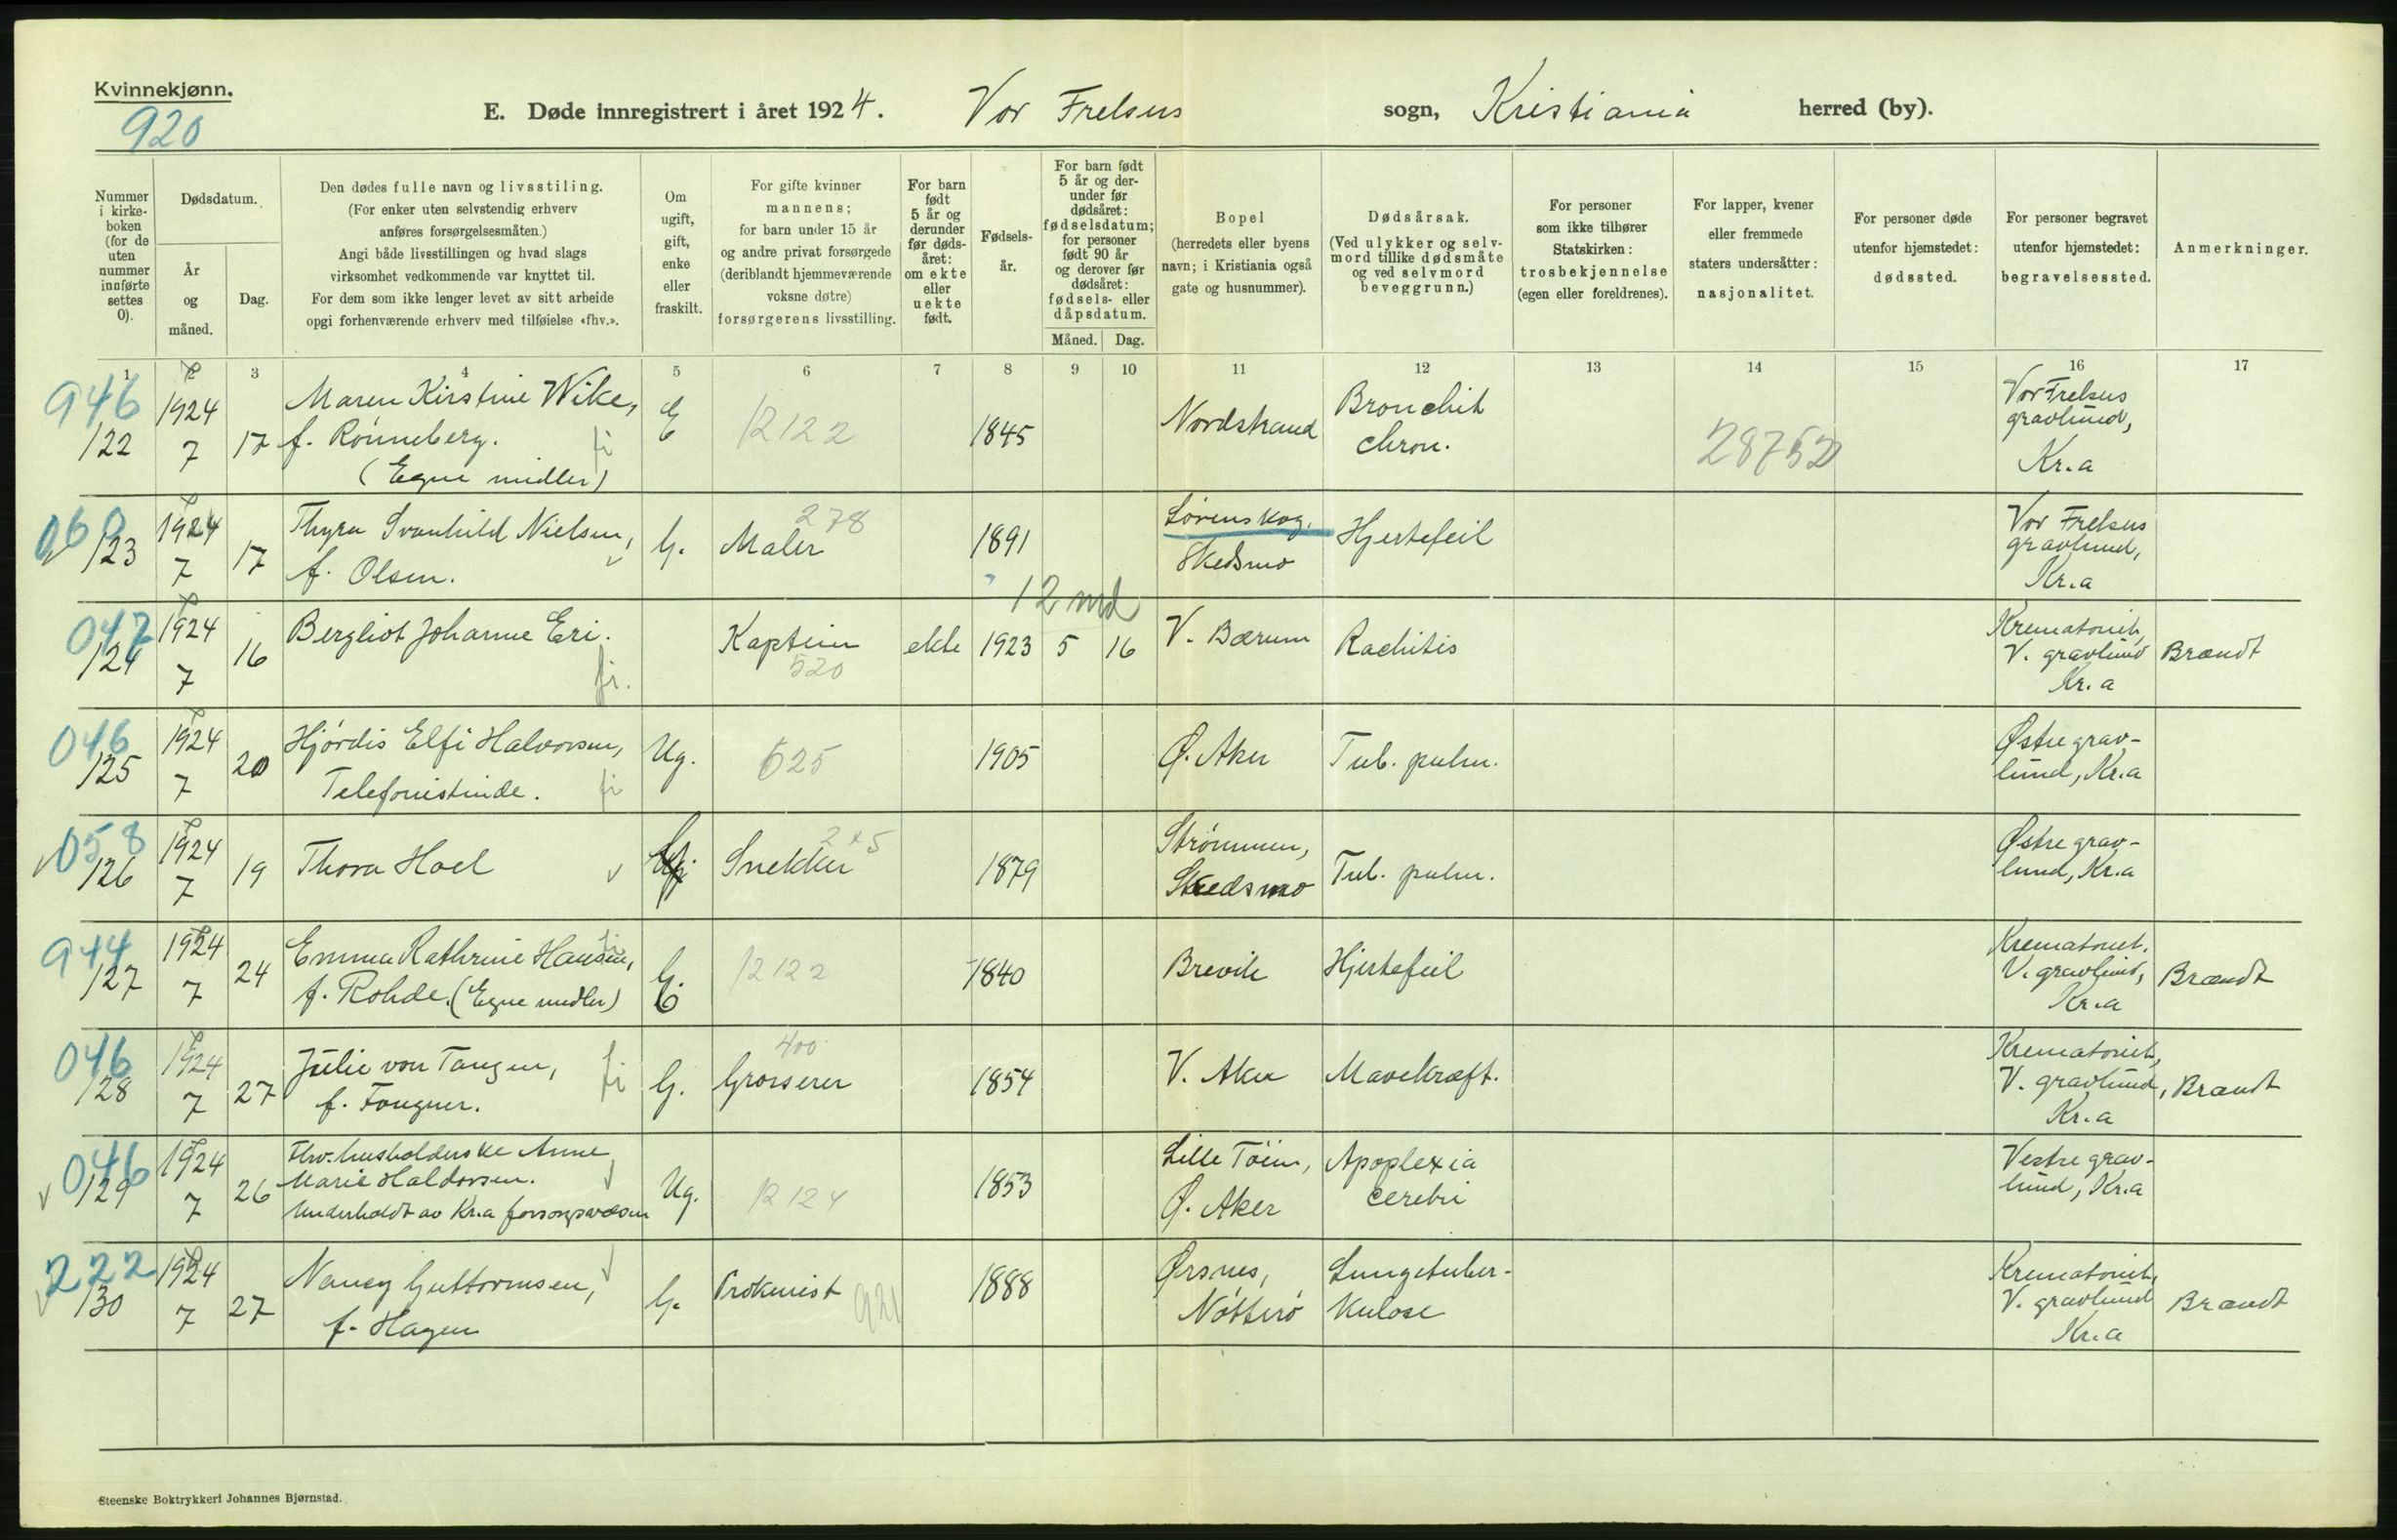 Kvinnekjønn.
920
E. Døde innregistrert i året 1924. Vor Frelsers sogn, Kristiania herred (by).
Nummer i kirkeboken (for de uten nummer innførte settes 0).
Dødsdatum.
År og måned.
Dag.
Den dødes fulle navn og livsstiling.
(For enker uten selvstendig erhverv anføres forsørgelsesmåten.)
Angi både livsstillingen og hvad slags virksomhet vedkommende var knyttet til.
For dem som ikke lenger levet av sitt arbeide opgi forhenværende erhverv med tilføielse «fhv.».
Om ugift, gift, enke eller fraskilt.
For gifte kvinner mannens; for barn under 15 år og andre privat forsørgede (deriblandt hjemmeværende voksne døtre) forsørgerens livsstilling.
For barn født 5 år og derunder før dødsåret: om ekte eller uekte født.
Fødselsår.
For barn født 5 år og derunder før dødsåret: fødselsdatum; for personer født 90 år og derover før dødsåret: fødsels- eller dåpsdatum.
Måned.
Dag.
Bopel (herredets eller byens navn; i Kristiania også gate og husnummer).
Dødsårsak. (Ved ulykker og selvmord tillike dødsmåte og ved selvmord beveggrunn.)
For personer som ikke tilhører Statskirken: trosbekjennelse (egen eller foreldrenes).
For lapper, kvener eller fremmede staters undersåtter: nasjonalitet.
For personer døde utenfor hjemstedet: dødssted.
For personer begravet utenfor hjemstedet: begravelsessted.
Anmerkninger.
1 2 3 4 5 6 7 8 9 10 11 12 13 14 15 16 17
946 122 1924 7 17 Maren Kirstine Wike, f. Rønneberg. (Egne midler) fi E 12122 1845 Nordstrand Bronchit chron. 28752 Vor Frelsers gravlund, Kr.a
060 123 1924 7 17 Thyra Svanhild Nielsen, f. Olsen. G. Maler 278 1891 Lørenskog. Skedsmo Hjertefeil Vor Frelsers gravlund, Kr.a
12 md
047 124 1924 7 16 Bergliot Johanne Eri. fi. Kaptein 520 ekte 1923 5 16 V. Bærum Rachitis Krematoriet, V. gravlund Kr.a Brændt
046 125 1924 7 20 Hjørdis Elfi Halvorsen, Telefonistinde. fi Ug. 625 1905 Ø. Aker Tub. pulm. Østre gravlund, Kr.a
058 126 1924 7 19 Thora Hoel Snekker 1879 Strømmen, Skedsmo Tub. pulm. Østre gravlund, Kr.a
944 127 1924 7 24 Emma Kathrine Hansen, f. Rohde. (Egne midler) fi E. 12122 1840 Brevik Hjertefeil Krematoriet. V. gravlund, Kr.a Brændt
046 128 1924 7 27 Julie von Tangen, f. Fougner. fi G. Grosserer 400 1854 V. Aker Mavekræft. Krematoriet, V. gravlund, Kr.a Brændt
046 129 1924 7 26 Fhv. husholderske Anne Marie Haldorsen. Underholdt av Kr.a forsorgsvæsen Ug. 12124 1853 Lille Tøien, Ø. Aker Apoplexia cerebri Vestre gravlund, Kr.a
222 130 1924 7 27 Nancy Guttormsen, f. Hagen G. Prokurist 921 1888 Ørsnes, Nøtterø Lungetuberkulose Krematoriet, V. gravlund Kr.a Brændt
Steenske Boktrykkeri Johannes Bjørnstad.